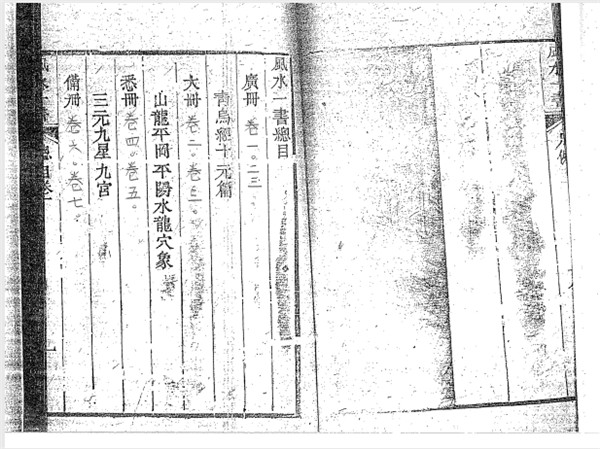 風水一書
風水一書總目
廣冊 卷一。二三
青烏經十元篇
大冊 卷二。卷三。
山龍平岡平陽水龍穴象
悉冊 卷四。卷五。
三元九星九宮
備冊 卷六。卷七。
風水一書 總目卷一